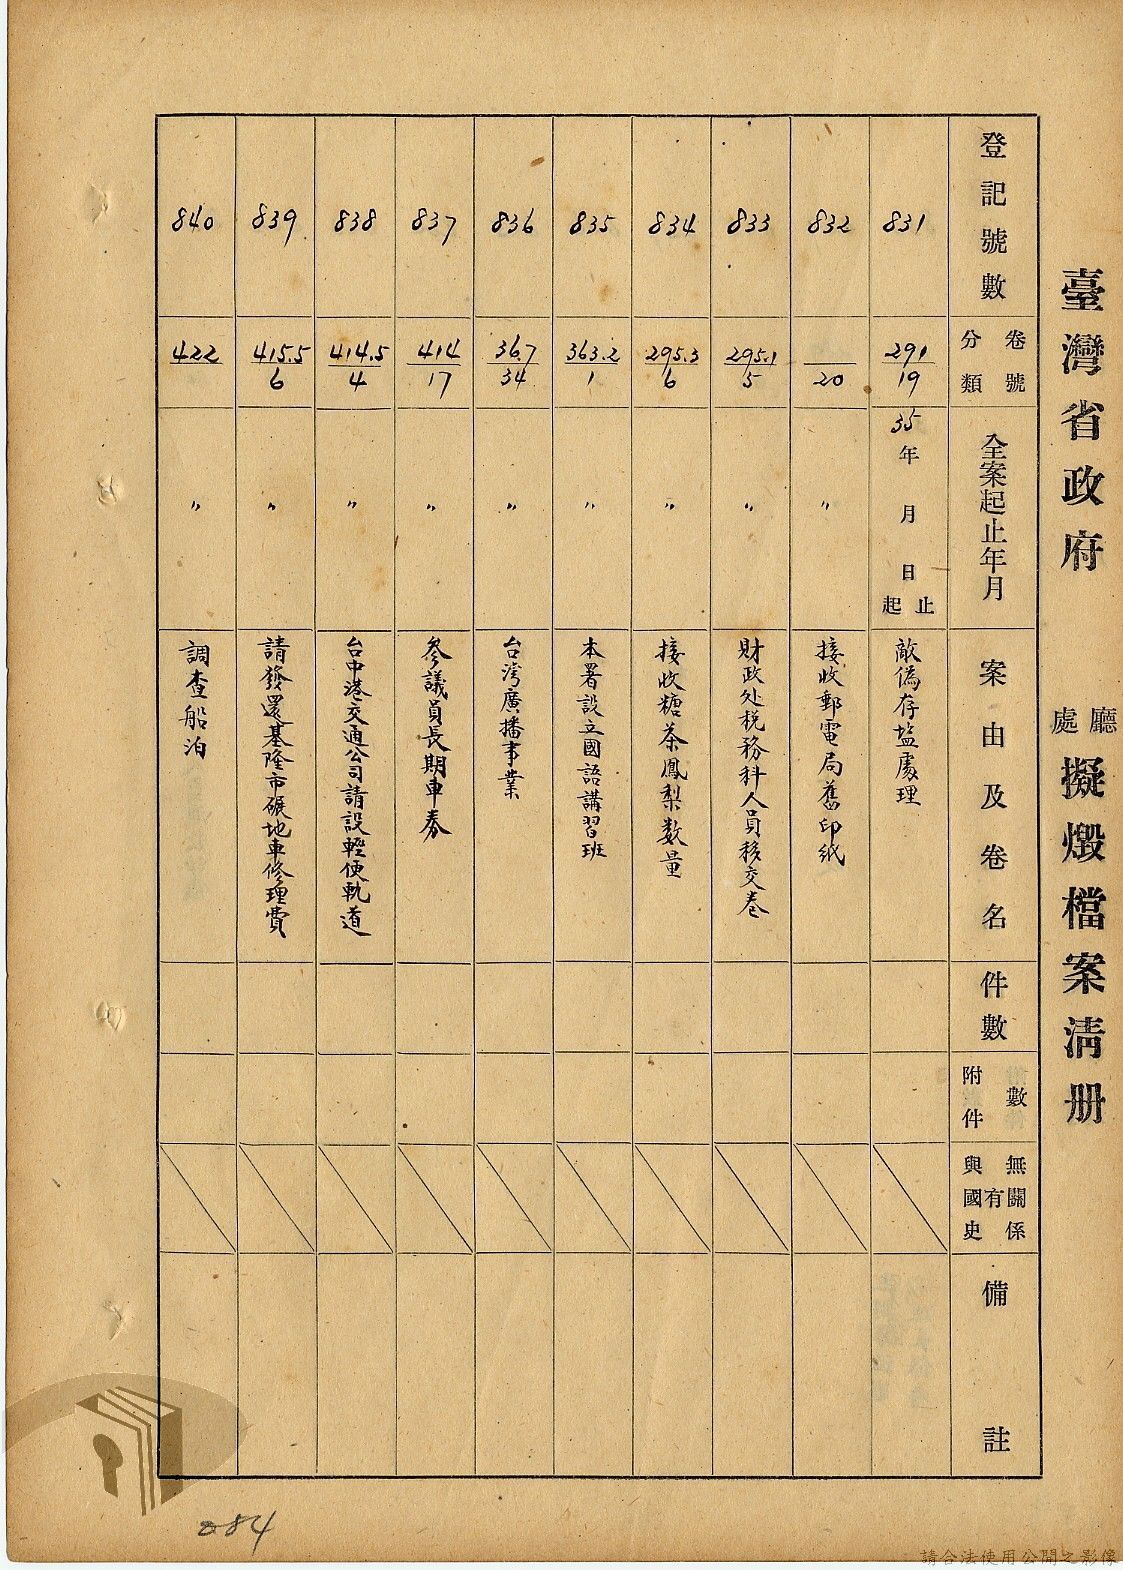 臺灣省政府 廳處 擬燬檔案清册
登記號數
分類 卷號
全案起止年月
案由及卷名
件數
附件數
與國史有無關係
備註
831
291
19
35年 月 日 起止
敵偽存鹽處理
832
20
〃
接收郵電局舊印紙
833
295.1
5
〃
財政处税務科人員移交卷
834
295.3
6
〃
接收糖茶鳳梨数量
835
363.2
1
〃
本署設立國語講習班
836
36.7
34
〃
台湾廣播事業
837
414
17
〃
參議員長期車券
838
414.5
4
〃
台中港交通公司請設輕便軌道
839
415.5
6
〃
請發還基隆市碾地車修理費
840
422
〃
調查船泊
284
請合法使用公開之影像